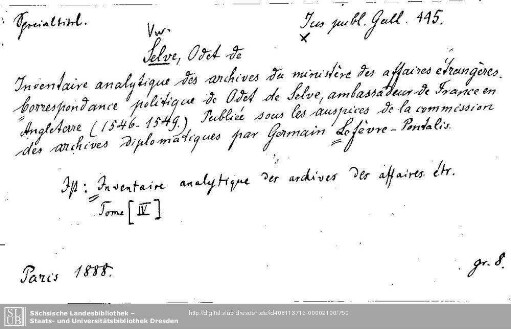 Specialtitel.
Jus publ. Gall. 445.
Vw.
x
Selve, Odet de
Inventaire analytique des archives du ministère des affaires étrangères.
Correspondance politique de Odet de Selve, ambassadeur de France en
Angleterre (1546-1549.) Publiée sous les auspices de la commission
des archives diplomatiques par Germain Lefèvre-Pontalis.
Inventaire analytique des archives des affaires étr.
Tome [IV]
Paris 1888.
gr. 8.
SLUB
Sächsische Landesbibliothek –
Staats- und Universitätsbibliothek Dresden